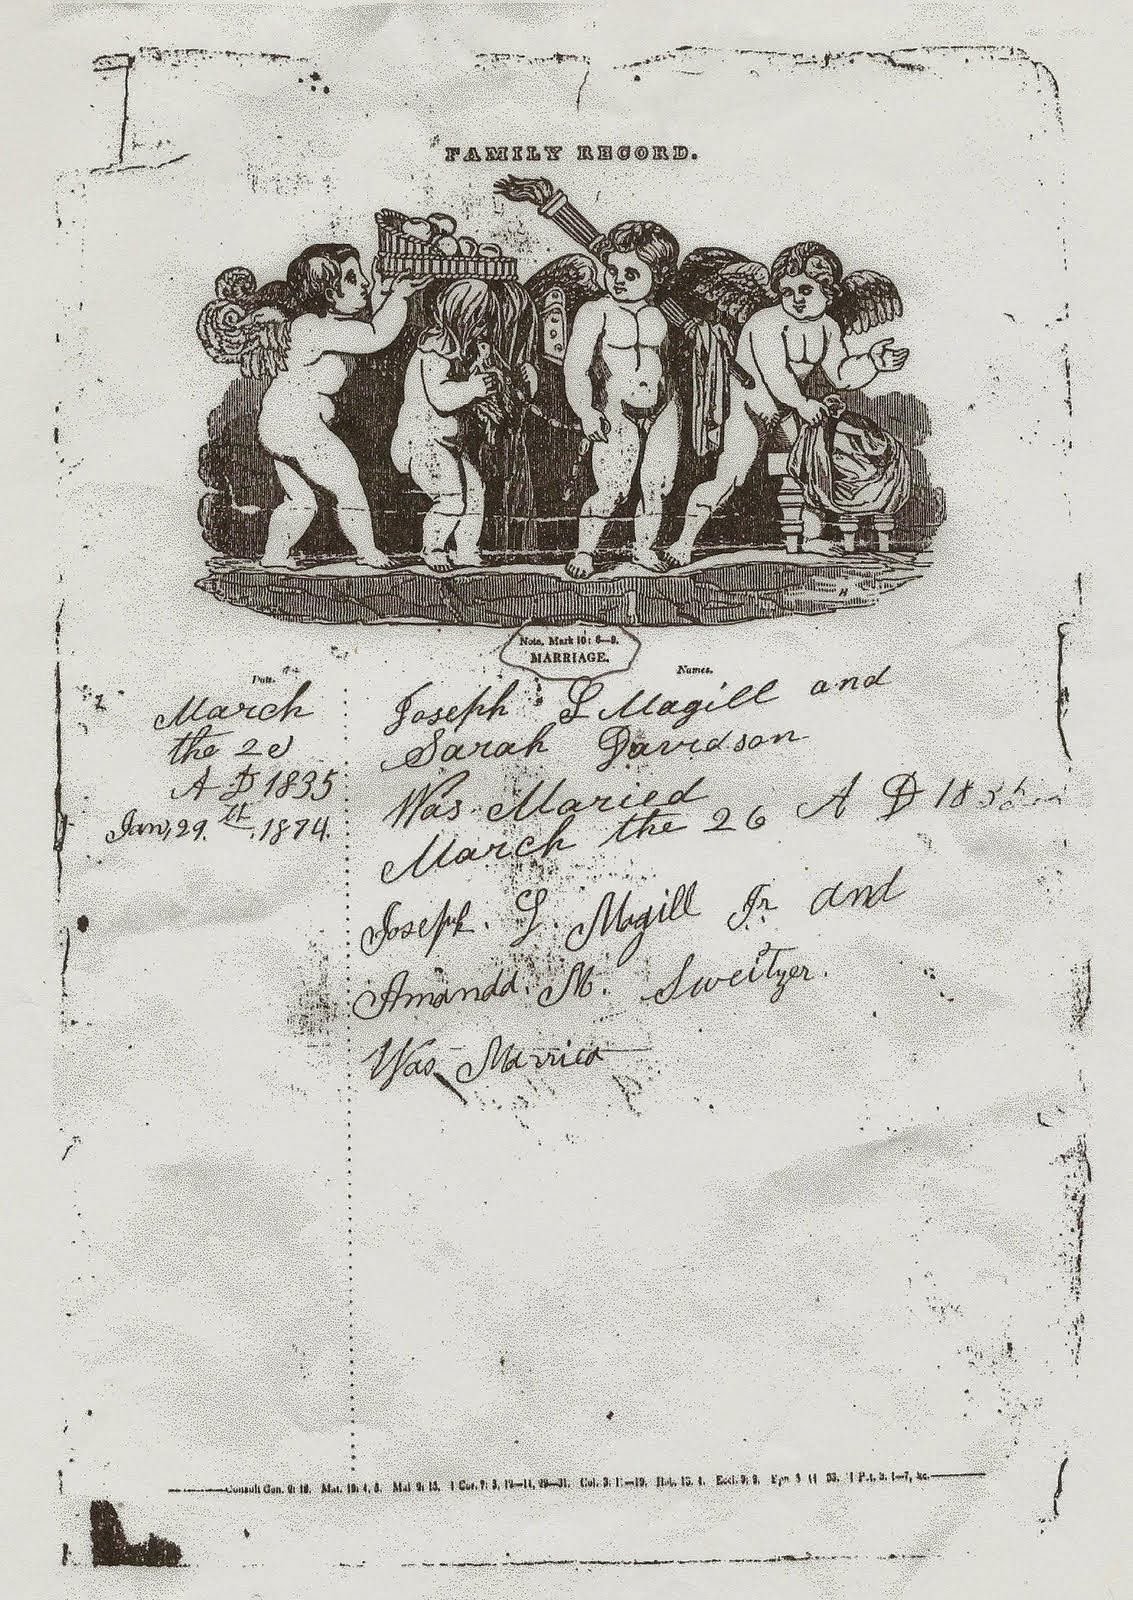 FAMILY RECORD.
Note. Mark 10: 6—9.
MARRIAGE.
Date.
Names.
March
the 26
A D 1835
Jan, 29. th, 1874.
Joseph L Magill and
Sarah Davidson
Was Maried
March the 26 A D 1835
Joseph. L. Magill Jr and
Amanda. M. Sweitzer.
Was Married
Consult Gen. Mat. 19: 4, 6. Mal 1 Cor. 7: Col. 3: Heb. 13. 4. Eccl. 9: 9. 1—7, &c.